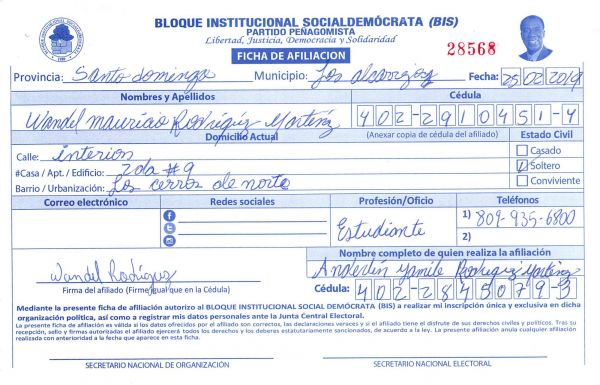 BLOQUE INSTITUCIONAL SOCIALDEMÓCRATA (BIS)
PARTIDO PEÑAGOMISTA
Libertad, Justicia, Democracia y Solidaridad
FICHA DE AFILIACION
28568
Provincia: Santo domingo Municipio: Los alcarrizos Fecha: 25/02/2019
Nombres y Apéllidos Cédula
Wandel mauricio Rodriguez Martinez 402-2910451-4
Domicilio Actual (Anexar copia de cédula del afiliado) Estado Civil
Calle: interion Casado
#Casa / Apt. / Edificio: 2da #9 Soltero
Barrio / Urbanización: Los cerros de norte Conviviente
Correo electrónico Redes sociales Profesión/Oficio Teléfonos
Estudiante 1) 809-935-6800
2)
Nombre completo de quien realiza la afiliación
Wandel Rodriguez Yamile Rodriguez Martinez
Firma del afiliado (Firme igual que en la Cédula) Cédula: 402-2845079-3
Mediante la presente ficha de afiliación autorizo al BLOQUE INSTITUCIONAL SOCIAL DEMÓCRATA (BIS) a realizar mi inscripción única y exclusiva en dicha
organización política, así como a registrar mis datos personales ante la Junta Central Electoral.
La presente ficha de afiliación es válida si los datos ofrecidos por el afiliado son correctos, las declaraciones veraces y si el afiliado tiene el disfrute de sus derechos civiles y políticos. Tras su
recepción, sello y firmas autorizadas el afiliado ejercerá todos los derechos y los deberes estatutariamente sancionados, de acuerdo a la ley. La presente afiliación anula cualquier afiliación
realizada con anterioridad a la fecha que aparece en esta ficha.
SECRETARIO NACIONAL DE ORGANIZACIÓN SECRETARIO NACIONAL ELECTORAL